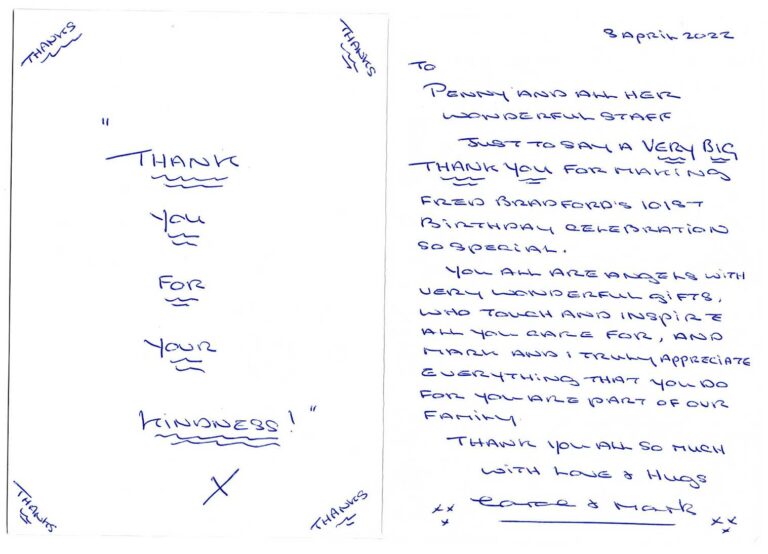 THANKS
THANKS
"
THANK
YOU
FOR
YOUR
KINDNESS!"
X
THANKS
THANKS
8 APRIL 2022
TO
PENNY AND ALL HER
WONDERFUL STAFF
JUST TO SAY A VERY BIG
THANK YOU FOR MAKING
FRED BRADFORD'S 101ST
BIRTHDAY CELEBRATION
SO SPECIAL.
YOU ALL ARE ANGELS WITH
VERY WONDERFUL GIFTS,
WHO TOUCH AND INSPIRE
ALL YOU CARE FOR, AND
MARK AND I TRULY APPRECIATE
EVERYTHING THAT YOU DO
FOR YOU ARE PART OF OUR
FAMILY.
THANK YOU ALL SO MUCH
WITH LOVE & HUGS
& MARK
xxx xxx